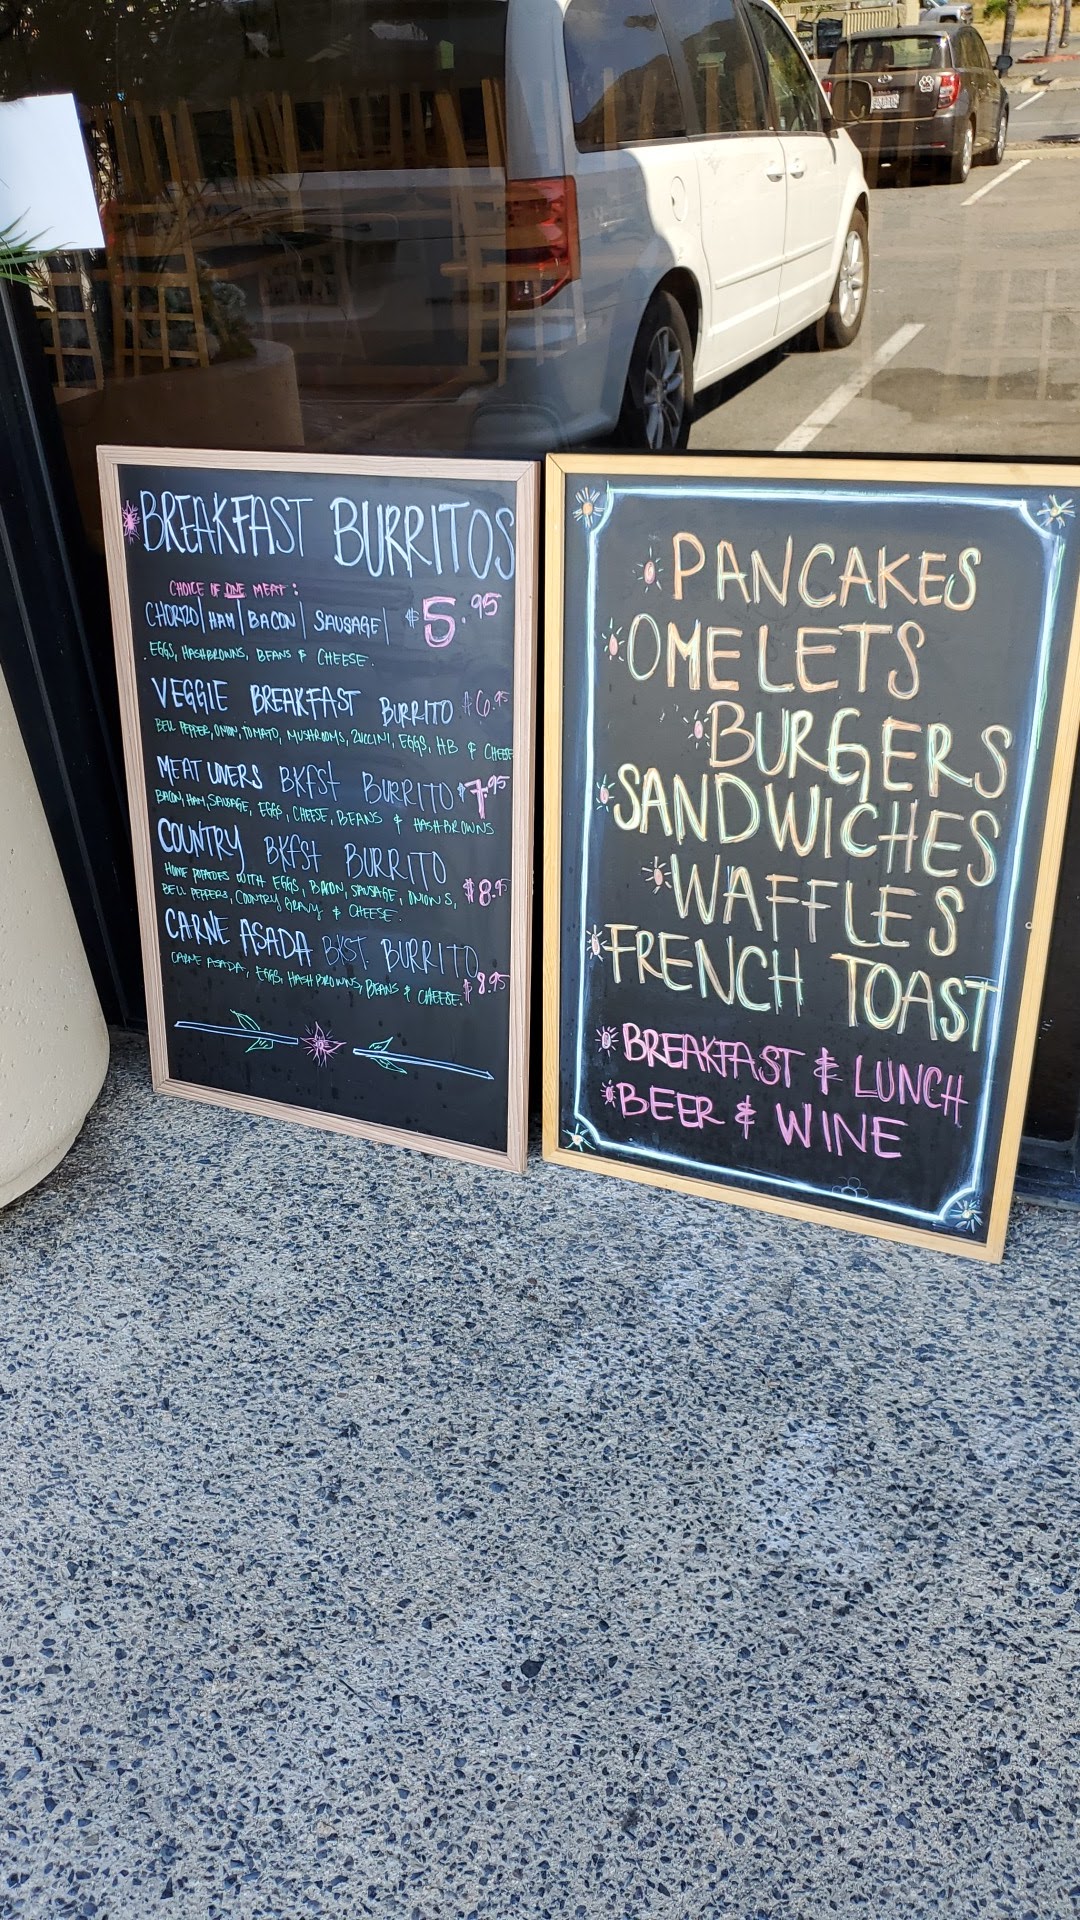 BREAKFAST BURRITOS
CHOICE OF ONE MEAT:
CHORIZO | HAM | BACON | SAUSAGE | $5.95
EGGS, HASHBROWNS, BEANS & CHEESE.
VEGGIE BREAKFAST BURRITO $6.95
BELL PEPPER, ONION, TOMATO, MUSHROOMS, ZUCCINI, EGGS, HB & CHEESE
MEAT LOVERS BKFST BURRITO $7.95
BACON, HAM, SAUSAGE, EGGS, CHEESE, BEANS & HASHBROWNS
COUNTRY BKFST BURRITO
HOME POTATOES WITH EGGS, BACON, SAUSAGE, ONIONS, $8.95
BELL PEPPERS, COUNTRY GRAVY & CHEESE.
CARNE ASADA BKST. BURRITO
CARNE ASADA, EGGS, HASHBROWNS, BEANS & CHEESE. $8.95
PANCAKES
OMELETS
BURGERS
SANDWICHES
WAFFLES
FRENCH TOAST
BREAKFAST & LUNCH
BEER & WINE